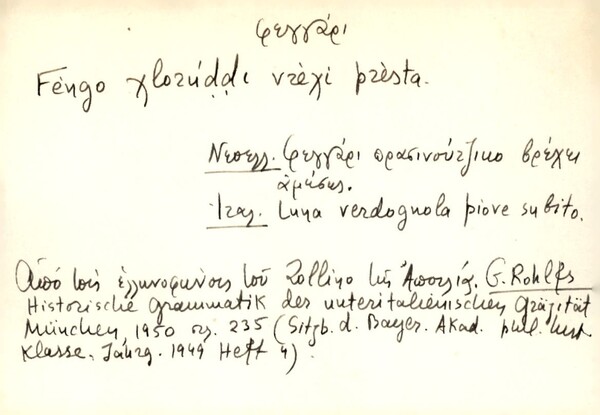 φεγγάρι
Fèngo χlorúḍḍi vrèχi prèsta.
Νεοελλ. Φεγγάρι πρασινούτζικο βρέχει
ἀμέσως.
Ἰταλ. Luna verdognola piove subito.
Ἀπό τούς ἑλληνοφώνους τοῦ Zollino τῆς Ἀπουλίας. G. Rohlfs
Historische Grammatik der unteritalienischen Gräzität
München, 1950 σς. 235 (Sitzb. d. Bayer. Akad. phil. hist
Klasse, Jahrg. 1949 Heft 4).